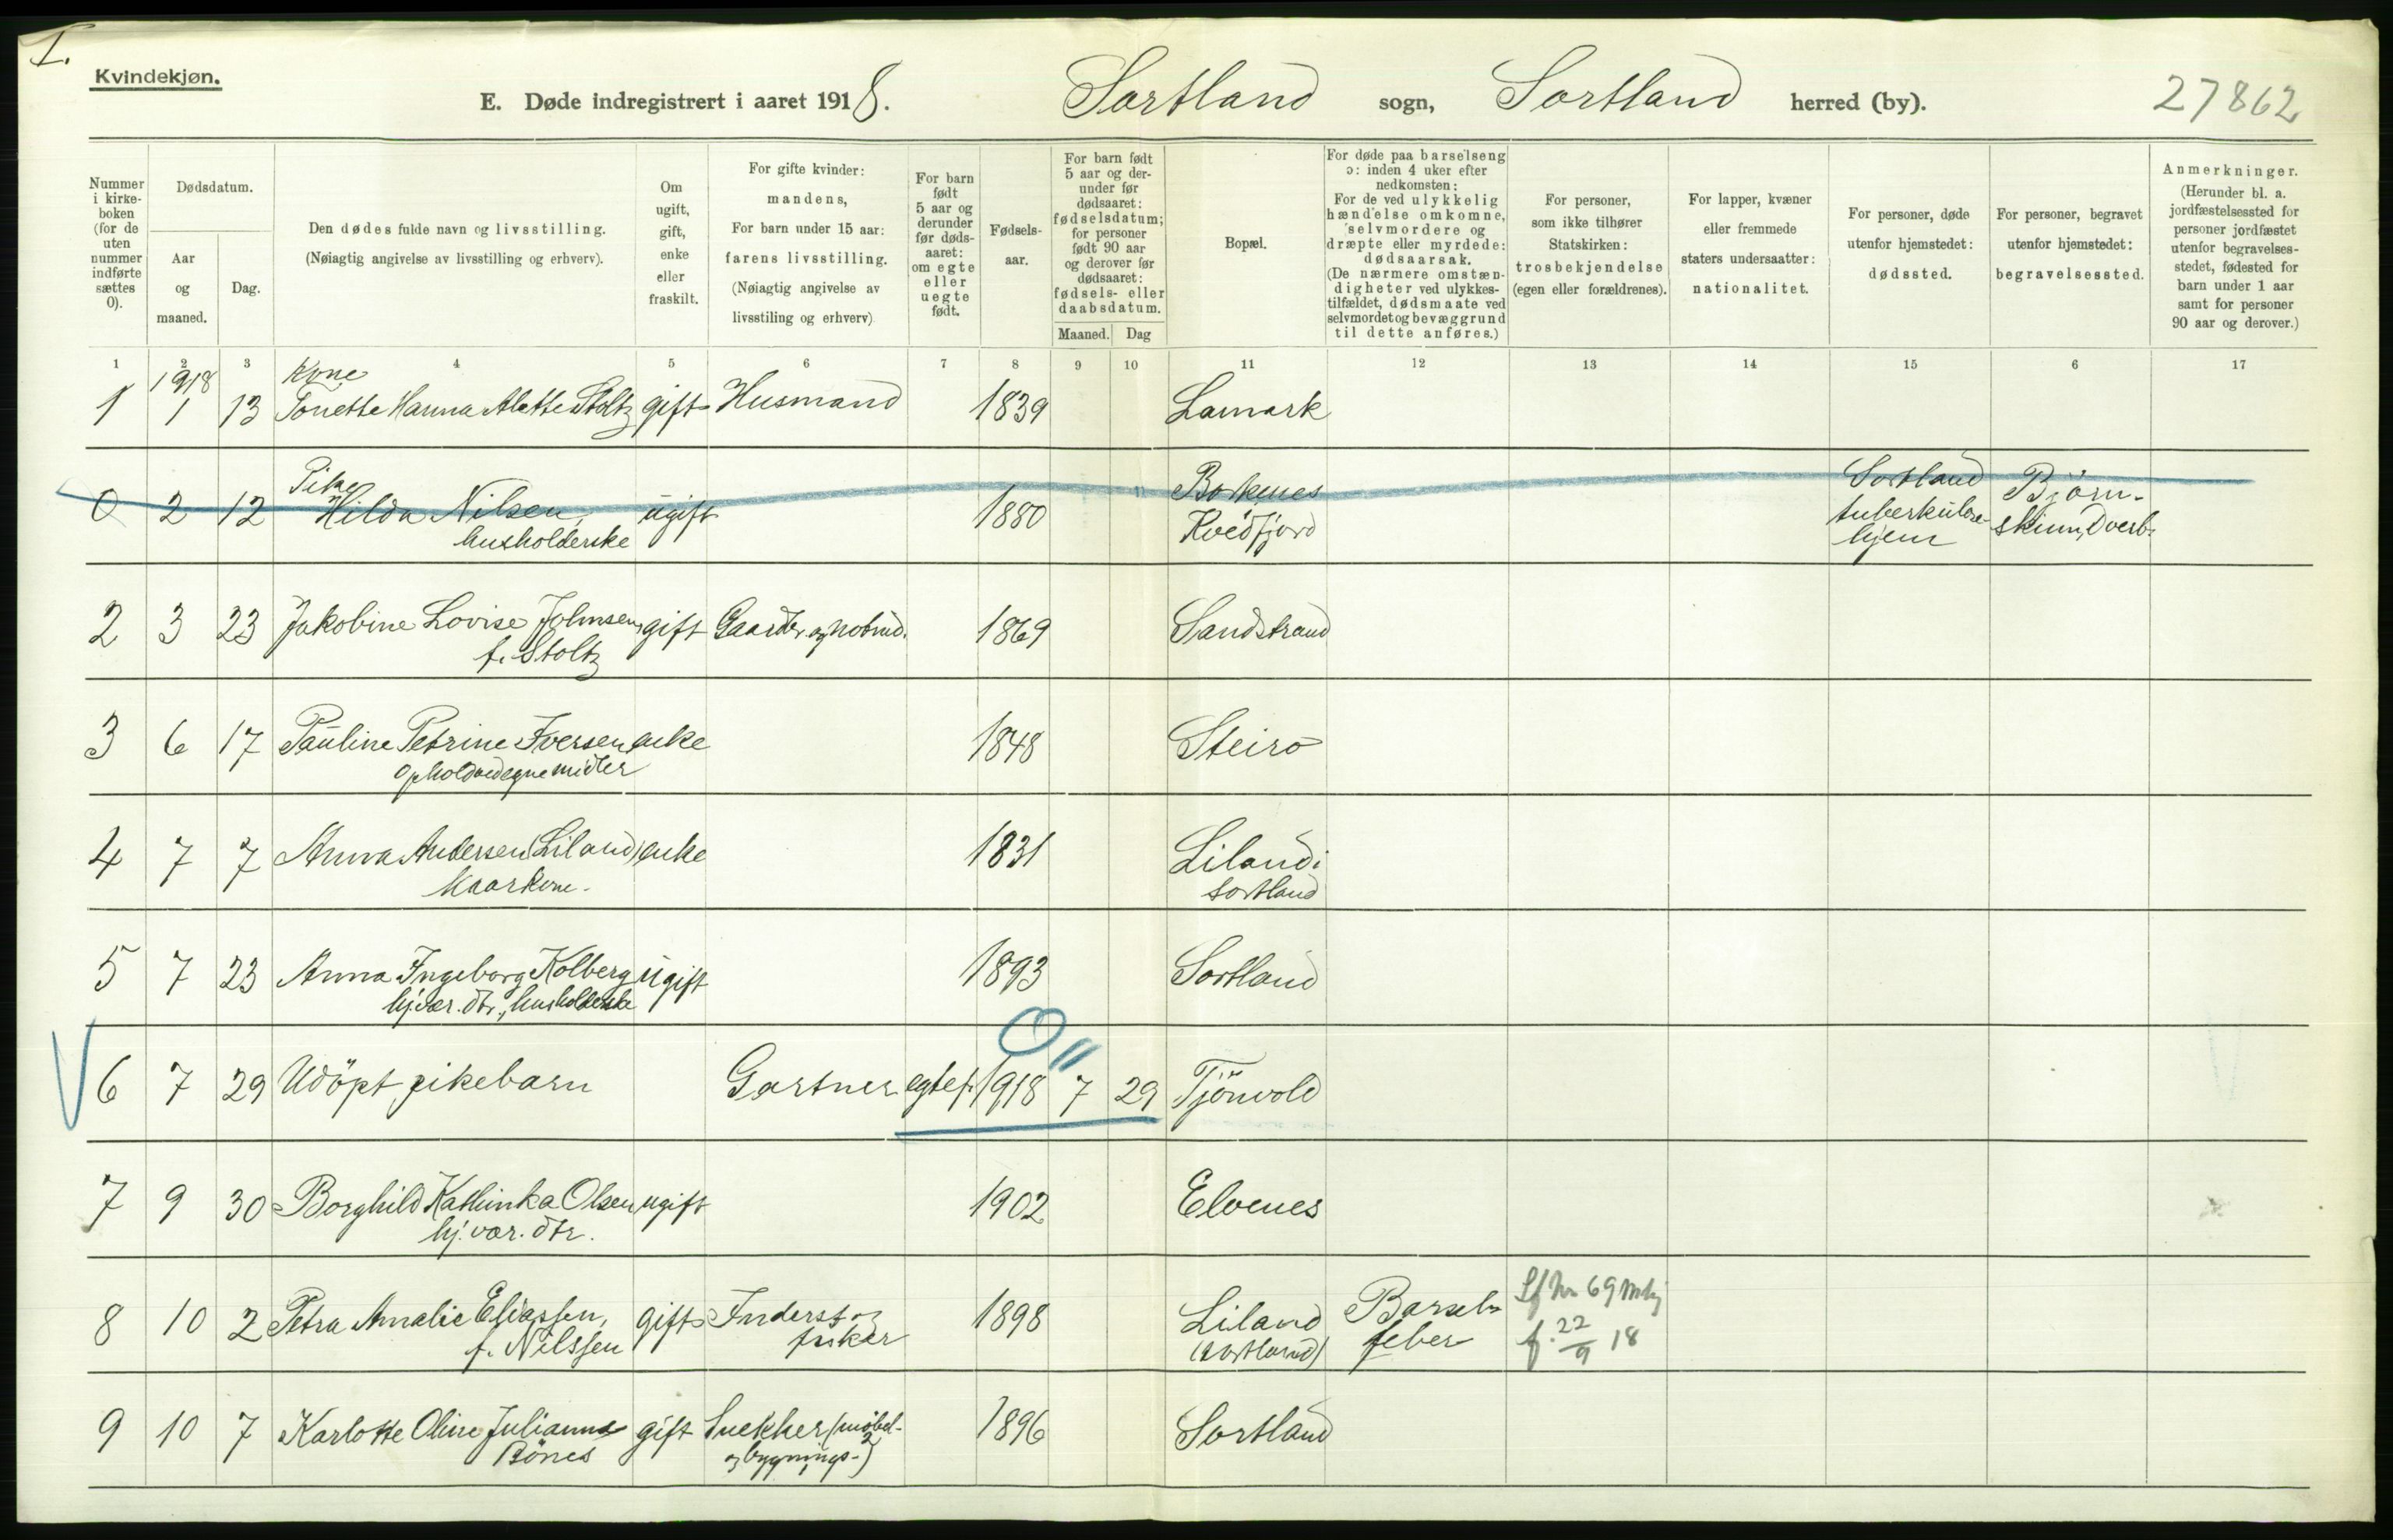 I.
Kvindekjøn.
E. Døde indregistrert i aaret 1918. Sortland sogn, Sortland herred (by). 27862
Nummer i kirke-boken (for de uten nummer indførte sættes 0).
Dødsdatum.
Aar og maaned.
Dag.
Den dødes fulde navn og livsstilling.
(Nøiagtig angivelse av livsstilling og erhverv).
Om ugift, gift, enke eller fraskilt.
For gifte kvinder: mandens,
For barn under 15 aar: farens livsstilling.
(Nøiagtig angivelse av livsstiling og erhverv)
For barn født 5 aar og derunder før døds-aaret: om egte eller uegte født.
Fødsels-aar.
For barn født 5 aar og der-under før dødsaaret: fødselsdatum; for personer født 90 aar og derover før dødsaaret: fødsels- eller daabsdatum.
Maaned. Dag
Bopæl.
For døde paa barselseng ɔ: inden 4 uker efter nedkomsten:
For de ved ulykkelig hændelse omkomne, selvmordere og dræpte eller myrdede: dødsaarsak.
(De nærmere omstæn-digheter ved ulykkes-tilfældet, dødsmaate ved selvmordet og bevæggrund til dette anføres.)
For personer, som ikke tilhører Statskirken: trosbekjendelse (egen eller forældrenes).
For lapper, kvæner eller fremmede staters undersaatter: nationalitet.
For personer, døde utenfor hjemstedet: dødssted.
For personer, begravet utenfor hjemstedet: begravelsessted.
Anmerkninger.
(Herunder bl. a. jordfæstelsessted for personer jordfæstet utenfor begravelses-stedet, fødested for barn under 1 aar samt for personer 90 aar og derover.)
1 2 3 4 5 6 7 8 9 10 11 12 13 14 15 6 17
1918 Kone
1 1 13 Tonette Hanna Alette Stoltz gift Husmand 1839 Lamark
Pike Boknes Sortland Björn-
0 2 12 Hilda Nilsen, ugift 1880 Kvedfjord tuberkulose- skinn, Dverb.
husholderske hjem
2 3 23 Jakobine Lovise Johnsen, gift Gaardbr. og notbrud. 1869 Sandstrand
f. Stoltz
3 6 17 Pauline Petrine Iversen enke 1848 Steiro
Ophold ved egne midler
4 7 7 Anna Andersen (Liland) enke 1831 Liland i
Kaarkone. Sortland
5 7 23 Anna Ingeborg Kolberg ugift 1893 Sortland
hj.vær. dtr., husholderske
6 7 29 Udöpt pikebarn Gartner egtef. 1918 7 29 Tjönvold
7 9 30 Borghild Kathinka Olsen ugift 1902 Elvenes
hj. vær. dtr.
8 10 2 Petra Amalie Eliassen, gift Inderst og 1898 Liland Barsel-
f. Nilssen fisker (Sortland) feber f. 22/9 18
9 10 7 Karlotte Oline Julianne gift Snekker (möbel- 1896 Sortland
Bönes og bygnings-)